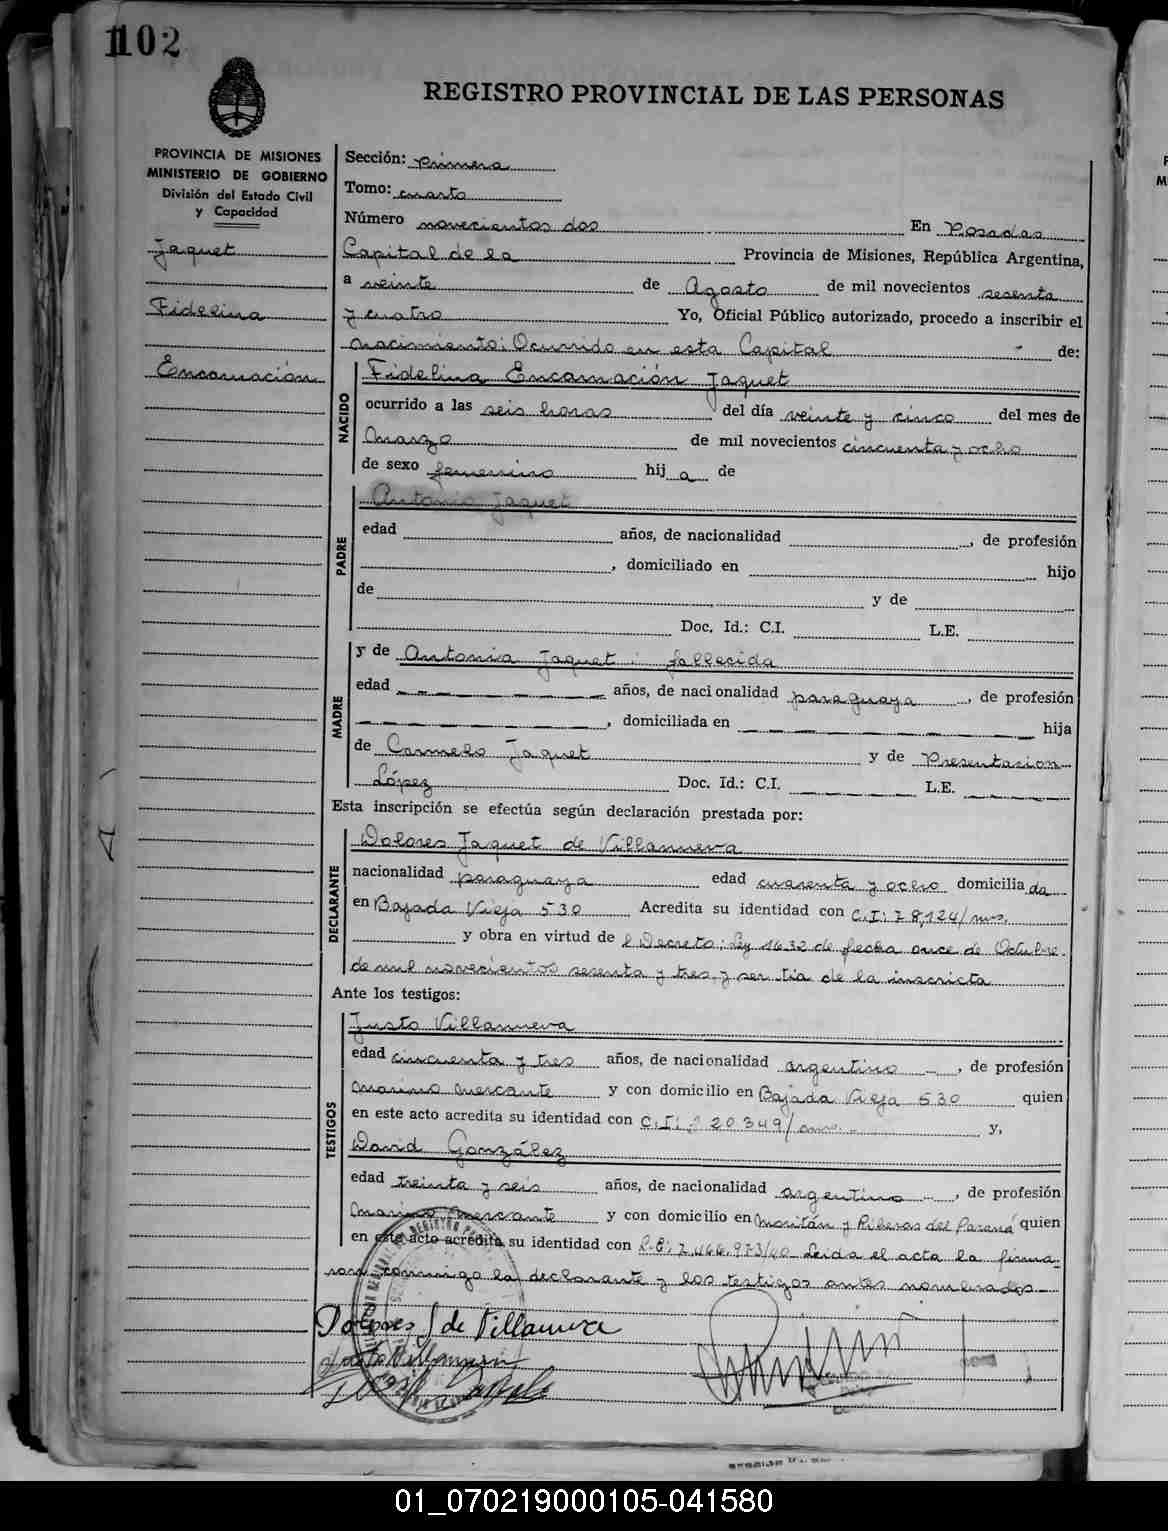 102
REGISTRO PROVINCIAL DE LAS PERSONAS
PROVINCIA DE MISIONES
MINISTERIO DE GOBIERNO
División del Estado Civil
y Capacidad
Jaquet
Fidelina
Encarnación
Sección: primera
Tomo: cuarto
Número novecientos dos En Posadas
Capital de la Provincia de Misiones, República Argentina,
a veinte de Agosto de mil novecientos sesenta
y cuatro Yo, Oficial Público autorizado, procedo a inscribir el
nacimiento: Ocurrido en esta Capital de:
NACIDO
Fidelina Encarnación Jaquet
ocurrido a las seis horas del día veinte y cinco del mes de
Marzo de mil novecientos cincuenta y ocho
de sexo femenino hija de
PADRE
Antonia Jaquet
edad años, de nacionalidad , de profesión
, domiciliado en hijo
de y de
Doc. Id.: C.I. L.E.
MADRE
y de Antonia Jaquet: fallecida
edad años, de nacionalidad paraguaya , de profesión
, domiciliada en hija
de Carmelo Jaquet y de Presentacion
López Doc. Id.: C.I. L.E.
Esta inscripción se efectúa según declaración prestada por:
DECLARANTE
Dolores Jaquet de Villanueva
nacionalidad paraguaya edad cuarenta y ocho domiciliada
en Bajada Vieja 530 Acredita su identidad con C.I: 78,124/mns.
y obra en virtud de l Decreto: Ley 1632 de fecha once de Octubre
de mil novecientos sesenta y tres, y ser tia de la inscricta
Ante los testigos:
TESTIGOS
Justo Villanueva
edad cincuenta y tres años, de nacionalidad argentino , de profesión
Marino mercante y con domicilio en Bajada Vieja 530 quien
en este acto acredita su identidad con C.I: 20.349/ y,
David González
edad treinta y seis años, de nacionalidad argentino , de profesión
Marino mercante y con domicilio en Moritán y Riberas del Paraná quien
en este acto acredita su identidad con Leida el acta la firma-
ron conmigo la declarante y los testigos antes nombrados
Dolores J de Villanueva
01_070219000105-041580